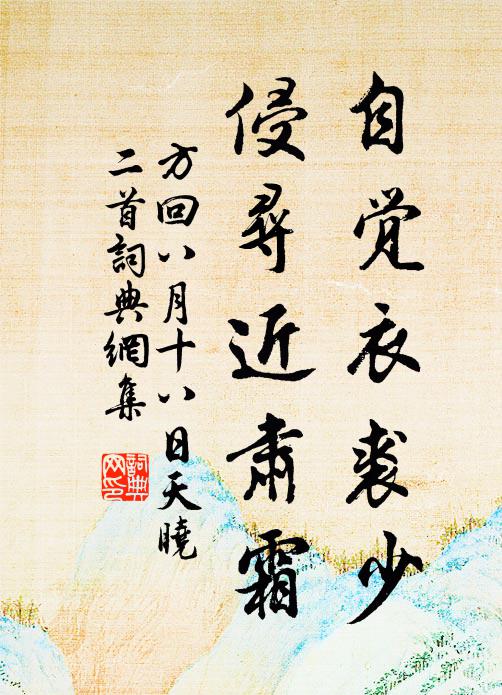 自觉衣裘少
侵尋近肅霜
方回八月十八日天曉
二首詞典網集
詞典网印